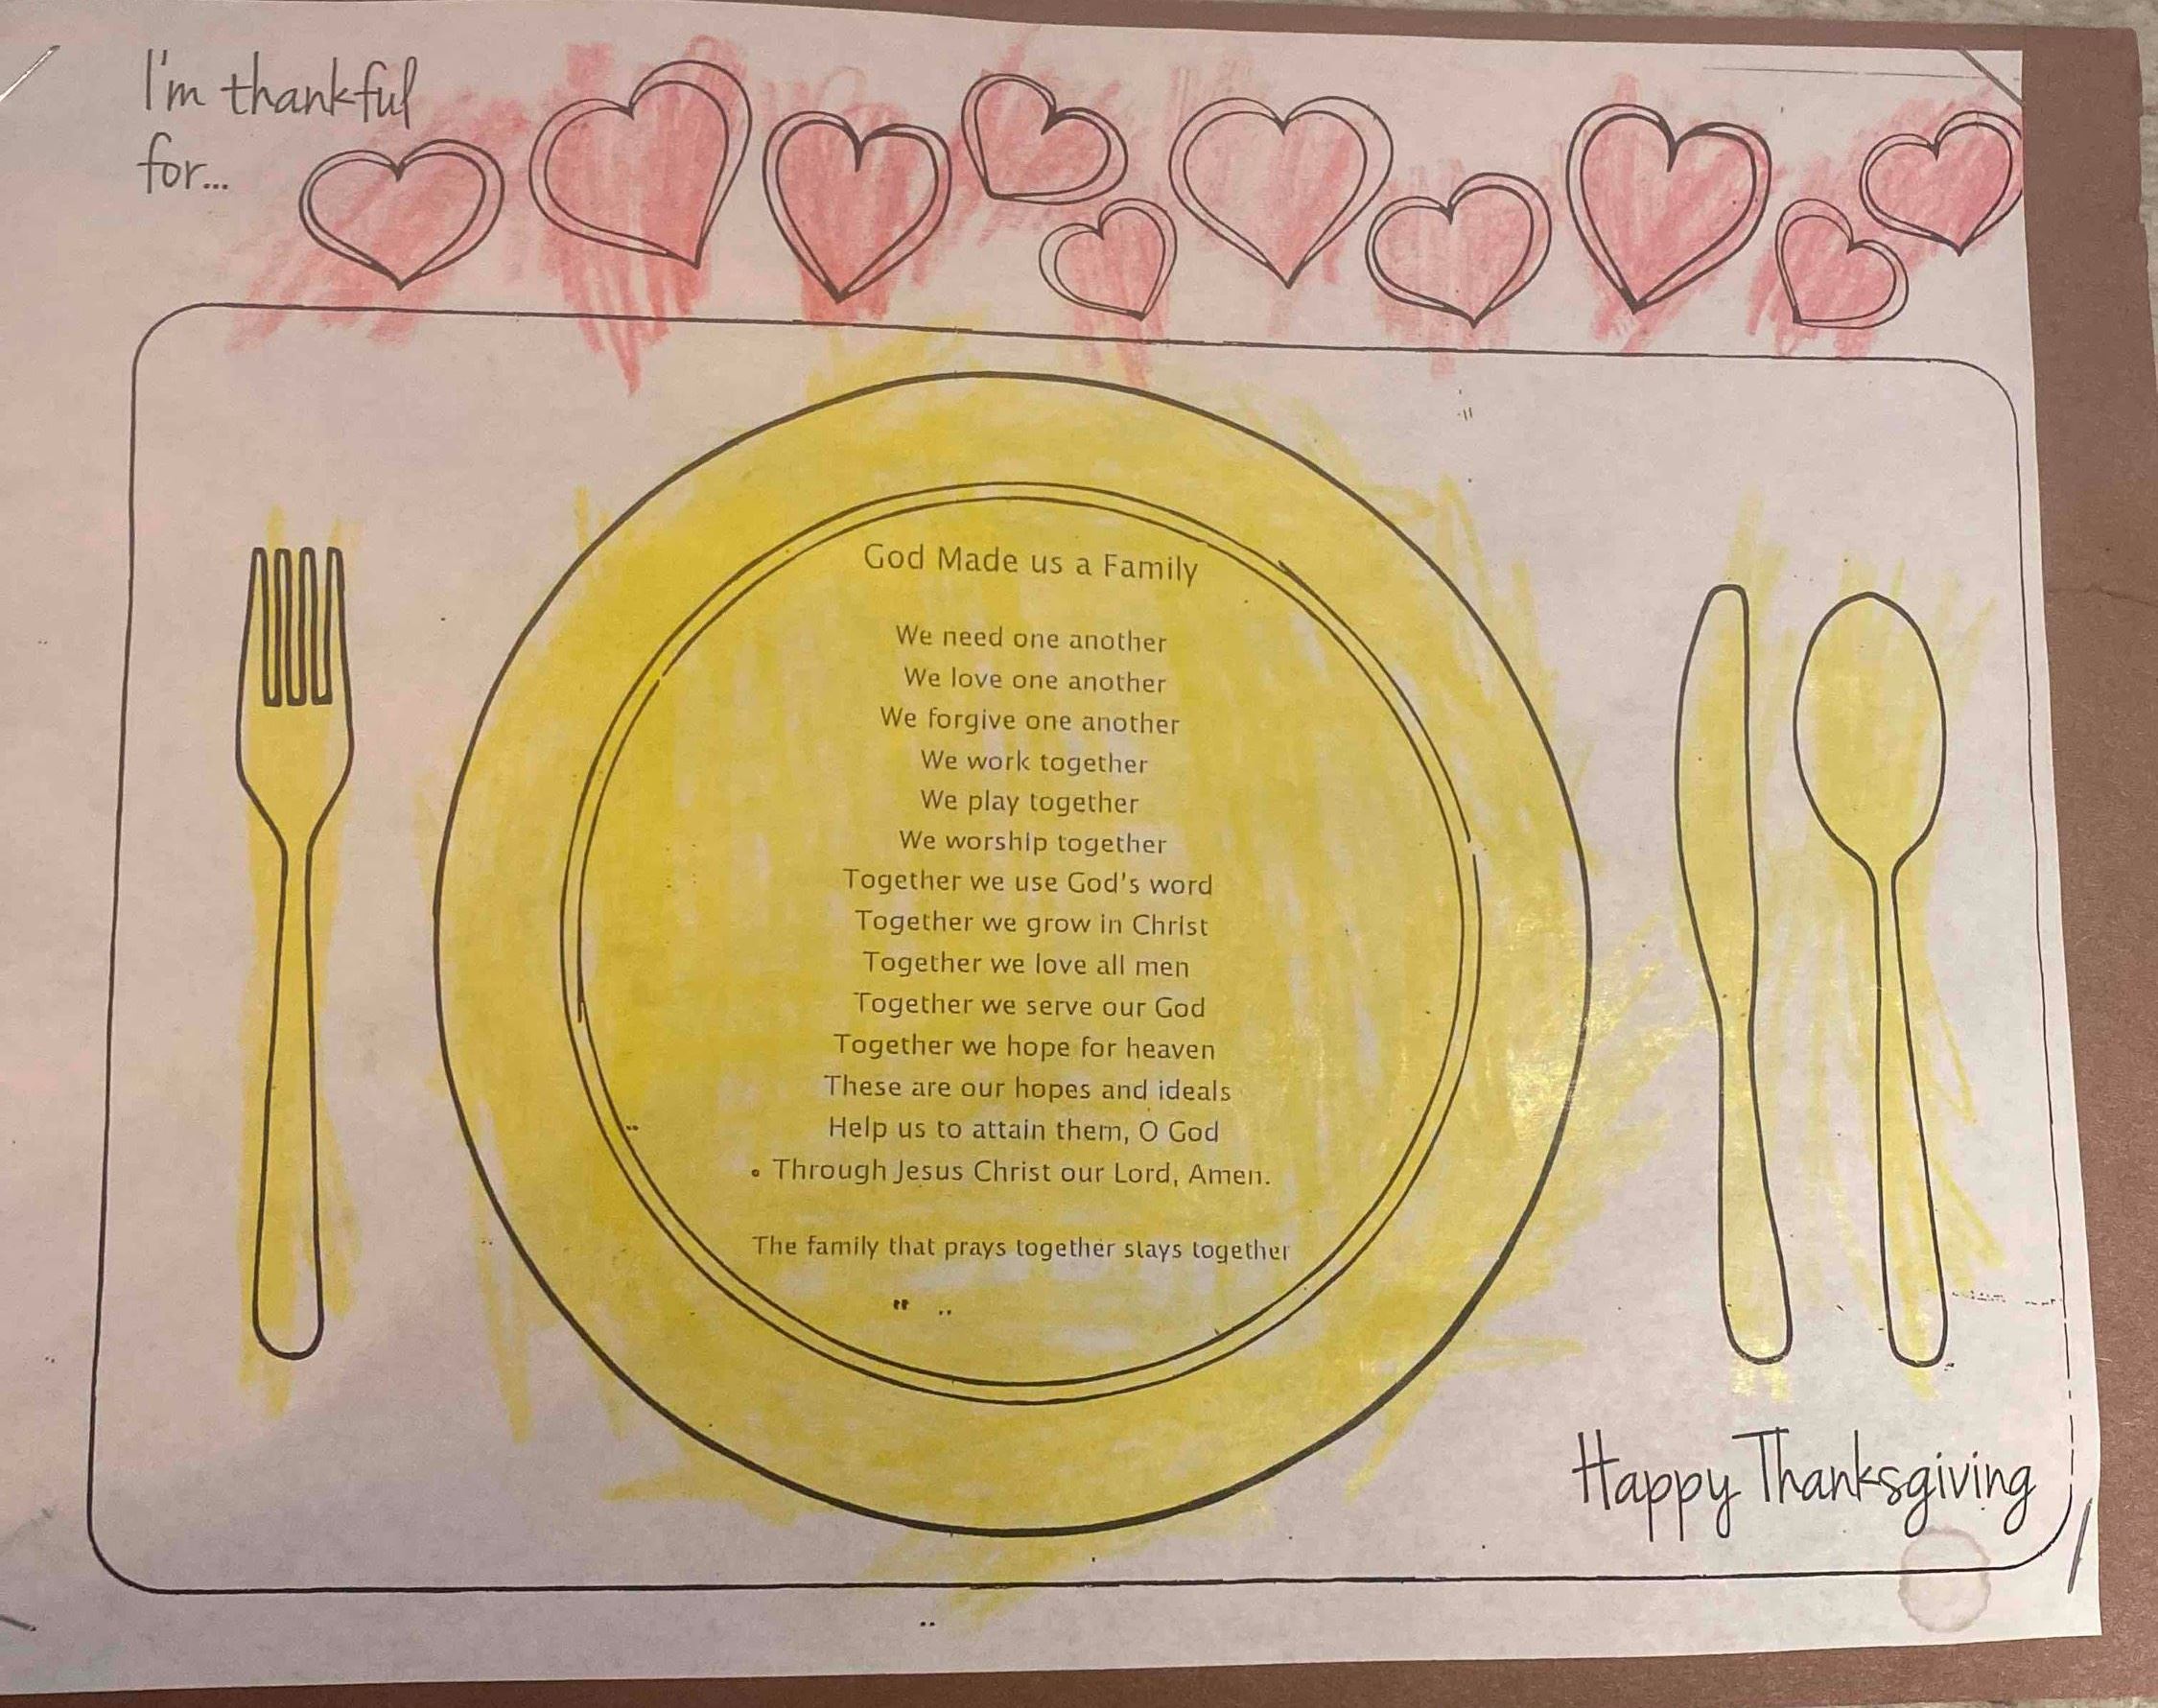 I'm thankful
for...
God Made us a Family
We need one another
We love one another
We forgive one another
We work together
We play together
We worship together
Together we use God's word
Together we grow in Christ
Together we love all men
Together we serve our God
Together we hope for heaven
These are our hopes and ideals
Help us to attain them, O God
Through Jesus Christ our Lord, Amen.
The family that prays together stays together
Happy Thanksgiving